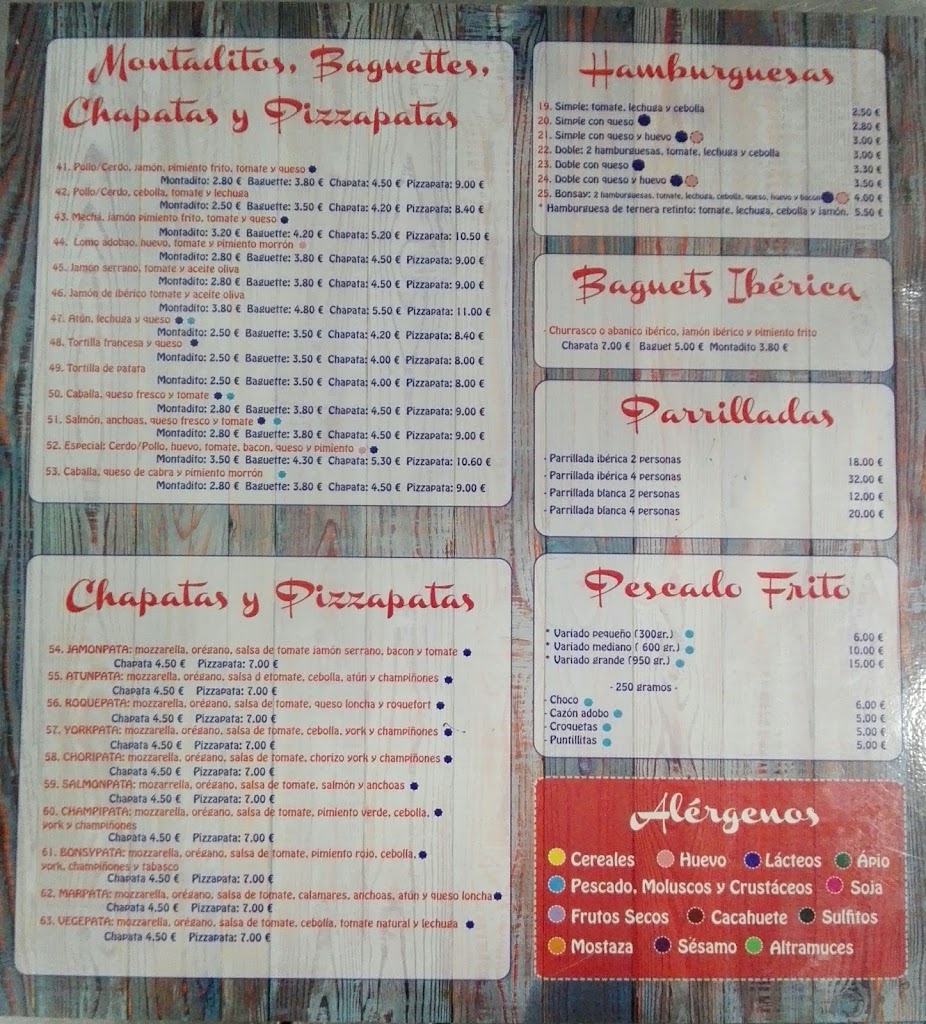 Montaditos, Baguettes,
Chapatas y Pizzapatas
41. Pollo/Cerdo, jamón, pimiento frito, tomate y queso
Montadito: 2.80 € Baguette: 3.80 € Chapata: 4.50 € Pizzapata: 9.00 €
42. Pollo/Cerdo, cebolla, tomate y lechuga
Montadito: 2.50 € Baguette: 3.50 € Chapata: 4.20 € Pizzapata: 8.40 €
43. Mecha, jamón pimiento frito, tomate y queso
Montadito: 3.20 € Baguette: 4.20 € Chapata: 5.20 € Pizzapata: 10.50 €
44. Lomo adobao, huevo, tomate y pimiento morrón
Montadito: 2.80 € Baguette: 3.80 € Chapata: 4.50 € Pizzapata: 9.00 €
45. Jamón serrano, tomate y aceite oliva
Montadito: 2.80 € Baguette: 3.80 € Chapata: 4.50 € Pizzapata: 9.00 €
46. Jamón de ibérico tomate y aceite oliva
Montadito: 3.80 € Baguette: 4.80 € Chapata: 5.50 € Pizzapata: 11.00 €
47. Atún, lechuga y queso
Montadito: 2.50 € Baguette: 3.50 € Chapata: 4.20 € Pizzapata: 8.40 €
48. Tortilla francesa y queso
Montadito: 2.50 € Baguette: 3.50 € Chapata: 4.00 € Pizzapata: 8.00 €
49. Tortilla de patata
Montadito: 2.50 € Baguette: 3.50 € Chapata: 4.00 € Pizzapata: 8.00 €
50. Caballa, queso fresco y tomate
Montadito: 2.80 € Baguette: 3.80 € Chapata: 4.50 € Pizzapata: 9.00 €
51. Salmón, anchoas, queso fresco y tomate
Montadito: 2.80 € Baguette: 3.80 € Chapata: 4.50 € Pizzapata: 9.00 €
52. Especial: Cerdo/Pollo, huevo, tomate, bacon, queso y pimiento
Montadito: 3.50 € Baguette: 4.30 € Chapata: 5.30 € Pizzapata: 10.60 €
53. Caballa, queso de cabra y pimiento morrón
Montadito: 2.80 € Baguette: 3.80 € Chapata: 4.50 € Pizzapata: 9.00 €
Chapatas y Pizzapatas
54. JAMONPATA: mozzarella, orégano, salsa de tomate jamón serrano, bacon y tomate
Chapata 4.50 € Pizzapata: 7.00 €
55. ATUNPATA: mozzarella, orégano, salsa d etomate, cebolla, atún y champiñones
Chapata 4.50 € Pizzapata: 7.00 €
56. ROQUEPATA: mozzarella, orégano, salsa de tomate, queso loncha y roquefort
Chapata 4.50 € Pizzapata: 7.00 €
57. YORKPATA: mozzarella, orégano, salsa de tomate, cebolla, york y champiñones
Chapata 4.50 € Pizzapata: 7.00 €
58. CHORIPATA: mozzarella, orégano, salas de tomate, chorizo york y champiñones
Chapata 4.50 € Pizzapata: 7.00 €
59. SALMONPATA: mozarrella, orégano, salsa de tomate, salmón y anchoas
Chapata 4.50 € Pizzapata: 7.00 €
60. CHAMPIPATA: mozzarella, orégano, salsa de tomate, pimiento verde, cebolla,
york y champiñones
Chapata 4.50 € Pizzapata: 7.00 €
61. BONSYPATA: mozzarella, orégano, salsa de tomate, pimiento rojo, cebolla,
york, champiñones y tabasco
Chapata 4.50 € Pizzapata: 7.00 €
62. MARPATA: mozzarella, orégano, salsa de tomate, calamares, anchoas, atún y queso loncha
Chapata 4.50 € Pizzapata: 7.00 €
63. VEGEPATA: mozzarella, orégano, salsa de tomate, cebolla, tomate natural y lechuga
Chapata 4.50 € Pizzapata: 7.00 €
Hamburguesas
19. Simple: tomate, lechuga y cebolla 2.50 €
20. Simple con queso 2.80 €
21. Simple con queso y huevo 3.00 €
22. Doble: 2 hamburguesas, tomate, lechuga y cebolla 3.00 €
23. Doble con queso 3.30 €
24. Doble con queso y huevo 3.50 €
25. Bonsay: 2 hamburguesas, tomate, lechuga, cebolla, queso, huevo y bacon 4.00 €
* Hamburguesa de ternera retinto: tomate, lechuga, cebolla y jamón. 5.50 €
Baguets Ibérica
- Churrasco o abanico ibérico, jamón ibérico y pimiento frito
Chapata 7.00 € Baguet 5.00 € Montadito 3.80 €
Parrilladas
- Parrillada ibérica 2 personas 18.00 €
- Parrillada ibérica 4 personas 32.00 €
- Parrillada blanca 2 personas 12.00 €
- Parrillada blanca 4 personas 20.00 €
Pescado Frito
* Variado pequeño (300gr.) 6.00 €
* Variado mediano ( 600 gr.) 10.00 €
* Variado grande (950 gr.) 15.00 €
- 250 gramos -
- Choco 6.00 €
- Cazón adobo 5.00 €
- Croquetas 5.00 €
- Puntillitas 5.00 €
Alérgenos
Cereales Huevo Lácteos Apio
Pescado, Moluscos y Crustáceos Soja
Frutos Secos Cacahuete Sulfitos
Mostaza Sésamo Altramuces